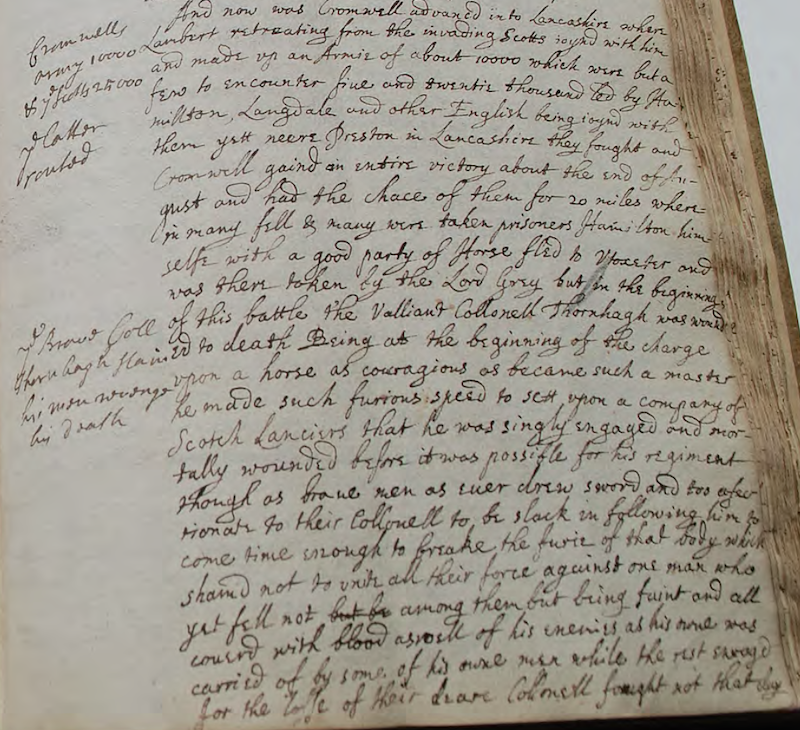 Cromwells
army 10000
& yᵉ scotts 25000
yᵉ latter
routed
And now was Cromwell advancd into Lancashire where
Lambert retreating from the invading Scotts ioynd with him
and made up an Armie of about 10000 which were but a
few to encounter five and twentie thousand led by Ha-
millton, Langdale and other English being ioynd with
them yett neere Preston in Lancashire they fought and
Cromwell gaind an entire victory about the end of Au-
gust and had the chace of them for 20 miles where-
in many fell & many were taken prisoners Hamilton him-
selfe with a good party of Horse fled to Vtoxeter and
was there taken by the Lord Grey but in the beginning
of this battle the Valliant Collonell Thornhagh was wound
ed to death Being at the beginning of the charge
upon a horse as couragious as became such a master
he made such furious speed to sett upon a company of
Scotch Lanciers that he was singly engaged and mor-
tally wounded before it was possible for his regiment
though as braue men as euer drew sword and too afec-
tionate to their Collonell to be slack in following him to
come time enough to breake the furie of that body which
shamd not to unite all their force against one man who
yet fell not but be among them but being faint and all
couerd with blood aswell of his enemies as his owne was
carried of by some of his owne men while the rest enragd
for the losse of their deare Collonell fought not that day
yᵉ Braue Coll
thornhagh slain
his men revenge
his death